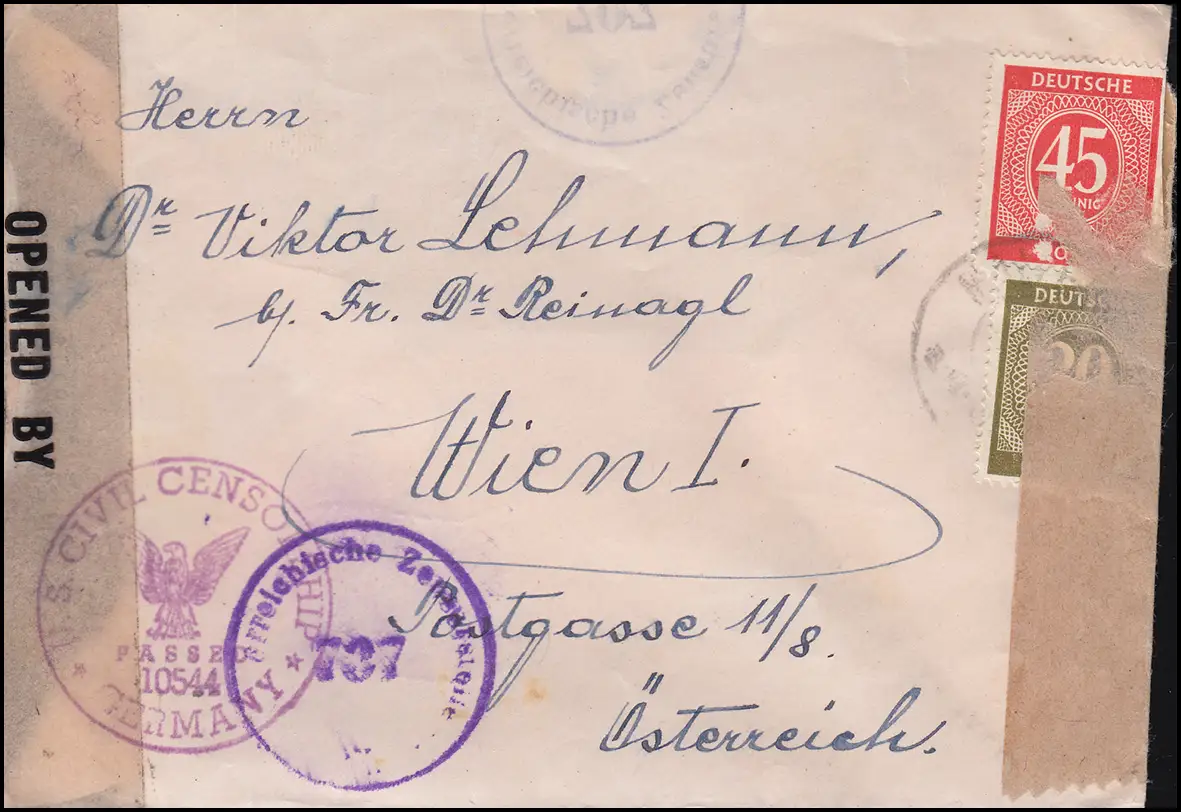 Herrn
Dr Viktor Lehmann,
b/. Fr. Dr Reinagl
Wien I.
Postgasse 11/8.
Österreich.
OPENED BY
DEUTSCHE
45
DEUTSC
U.S. CIVIL CENSORSHIP
PASSED
10544
GERMANY
rreichische Zensurstelle